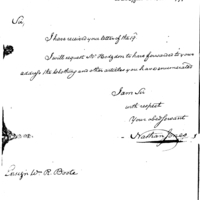 Sir,
I have received your letter of the 19
I will request Mr Hodgdon to have forwarded to your
address the clothing and other articles you have enumerated
I am Sir
with respect
Your obed servant
Nathan Jones
Ensign Wm R. Boote